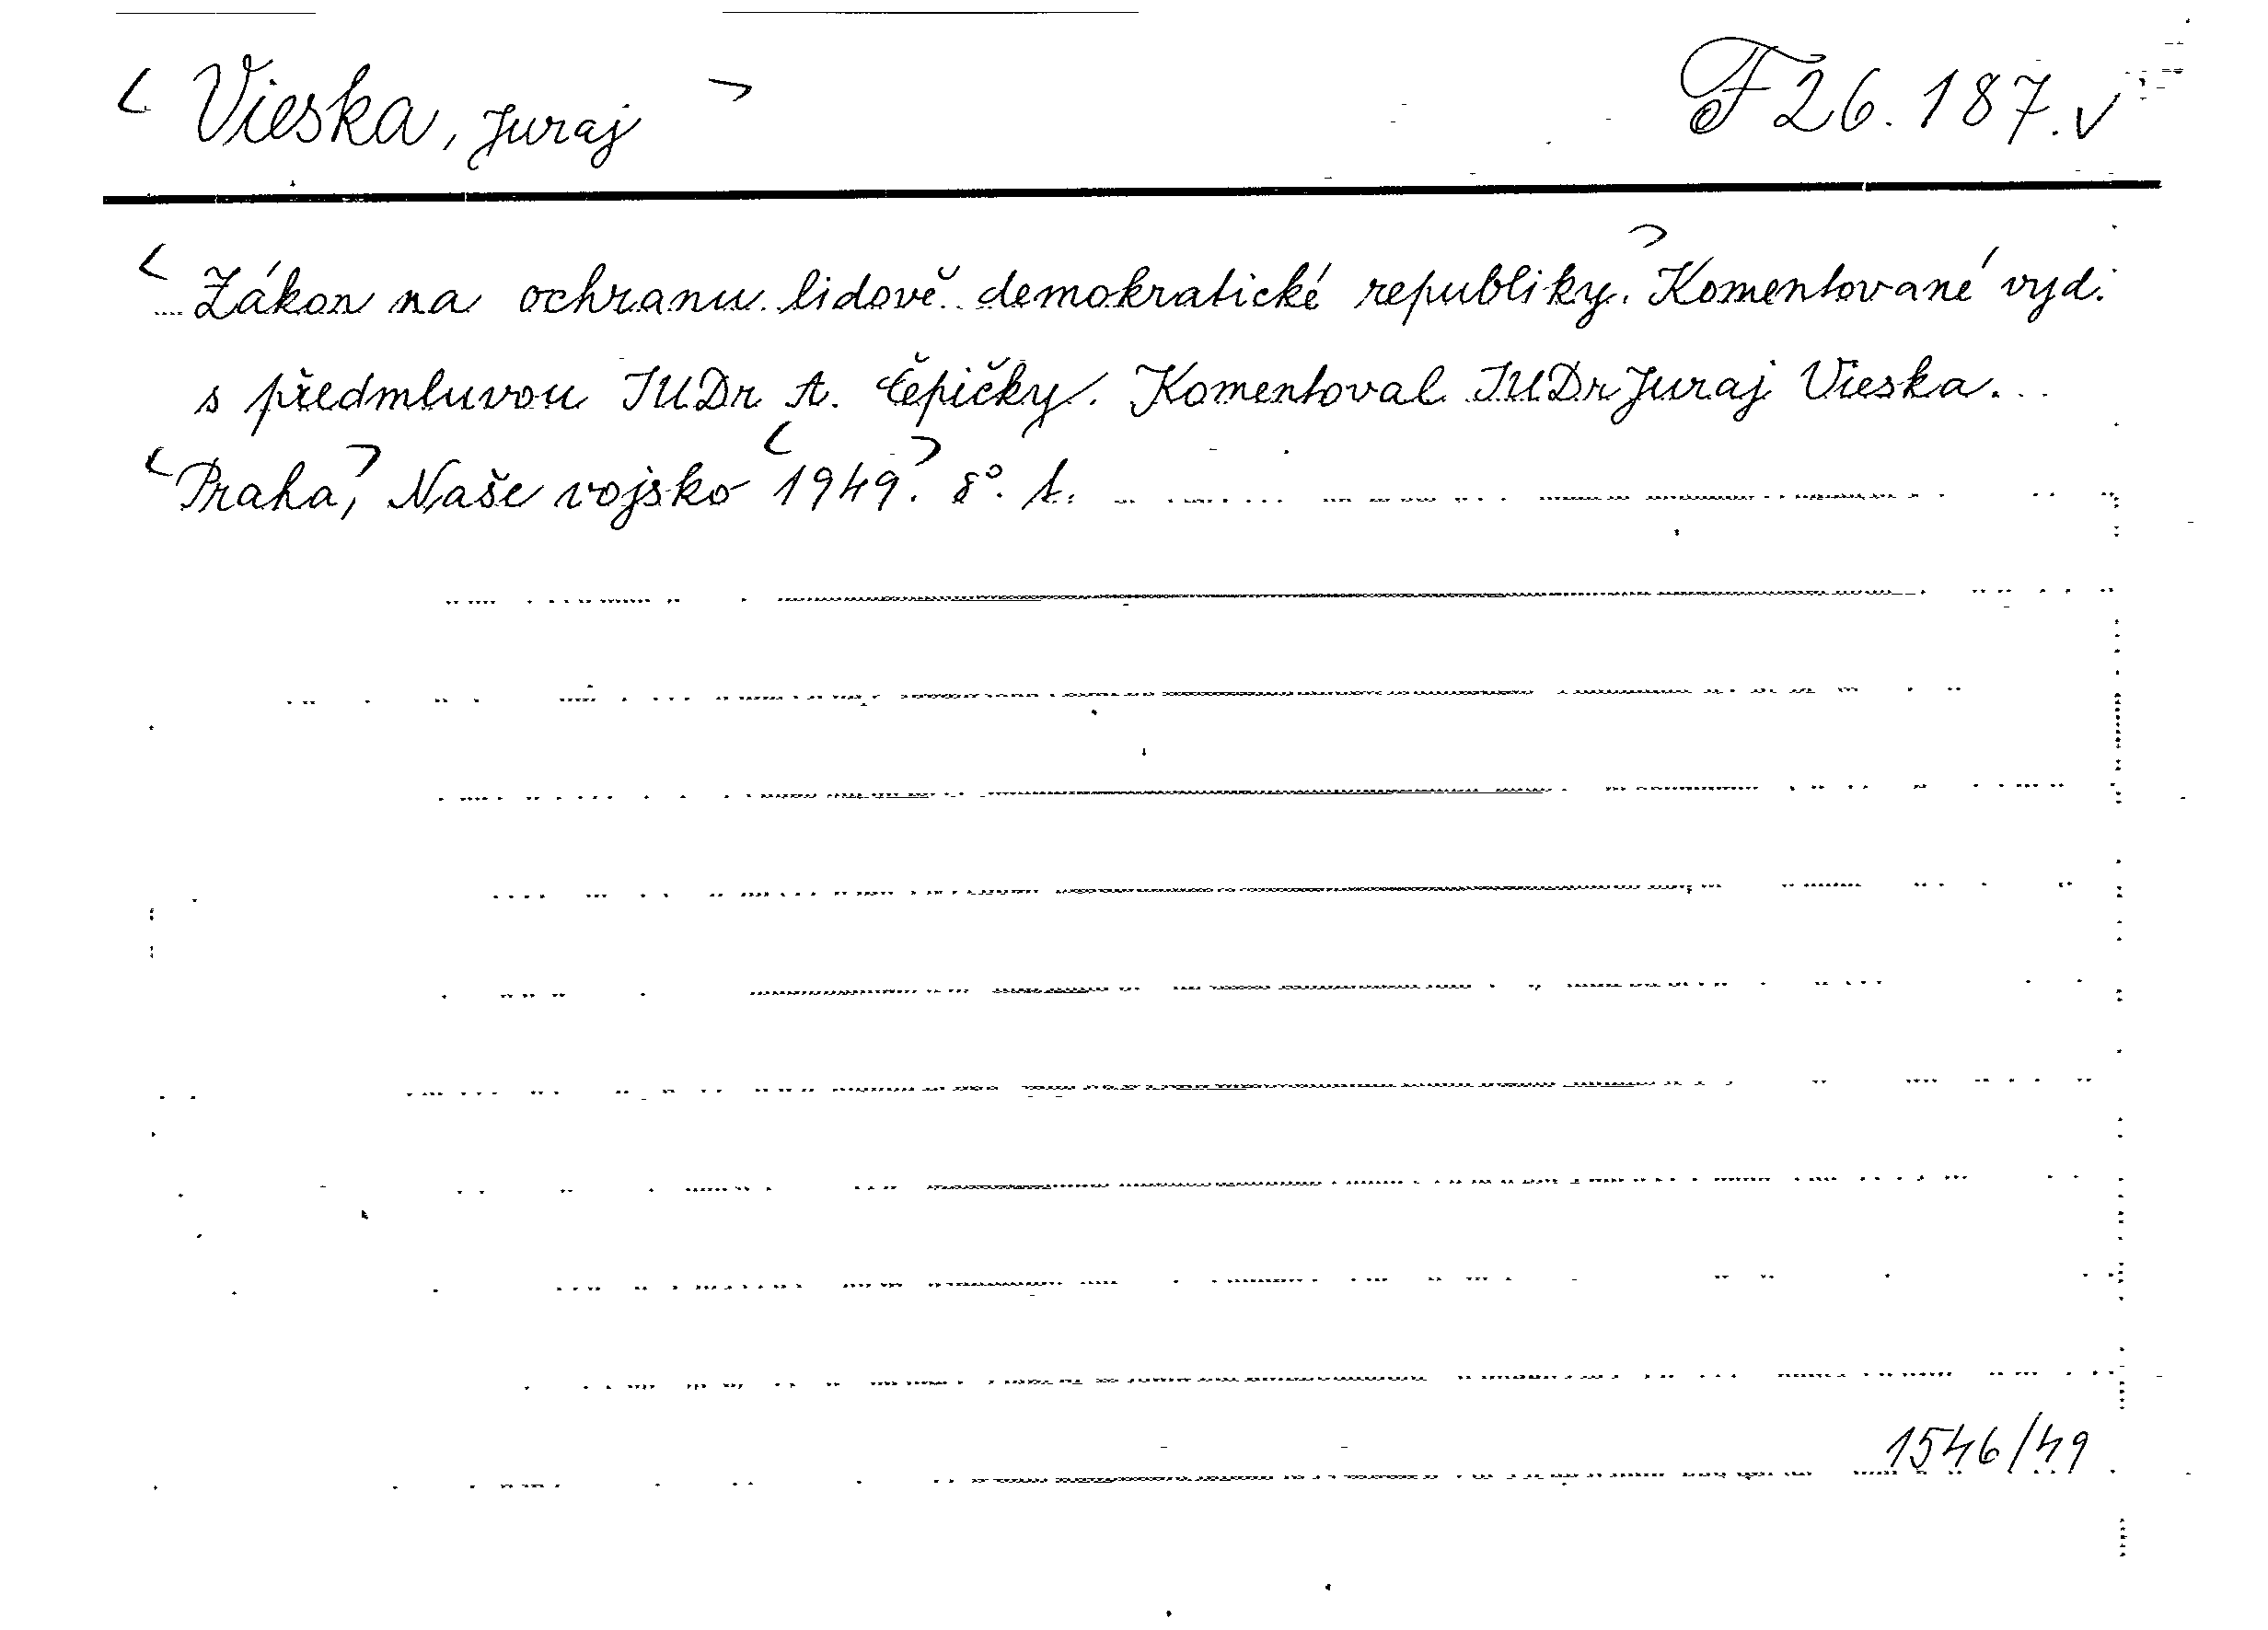 < Vieska, Juraj > F 26.187.v
< Zákon na ochranu lidově demokratické republiky.> Komentované vyd.
s předmluvou JUDr A. Čepičky. Komentoval JUDr Juraj Vieska.
<Praha,> Naše vojsko <1949.> 8°. t.
1546/49